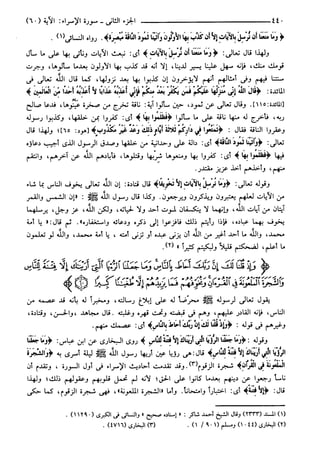 ٤٤٠ الجزء الثاني - سورة الإسراء: الآية (٦٠)
﴿وَمَا مَنَعَنَا أَن نُّرْسِلَ بِالْآيَاتِ إِلَّا أَن كَذَّبَ بِهَا الْأَوَّلُونَ وَآتَيْنَا ثَمُودَ النَّاقَةَ مُبْصِرَةً﴾. رواه النسائي(١).
ولهذا قال تعالى: ﴿وَمَا مَنَعَنَا أَن نُّرْسِلَ بِالْآيَاتِ﴾ أي: نبعث الآيات ونأتي بها على ما سأل
قومك منك، فإنه سهل علينا يسير لدينا، إلا أنه قد كذب بها الأولون بعدما سألوها، وجرت
سنتنا فيهم وفي أمثالهم أنهم لا يؤخرون إن كذبوا بها بعد نزولها، كما قال الله تعالى في
المائدة: ﴿قَالَ اللَّهُ إِنِّي مُنَزِّلُهَا عَلَيْكُمْ فَمَن يَكْفُرْ بَعْدُ مِنكُمْ فَإِنِّي أُعَذِّبُهُ عَذَابًا لَّا أُعَذِّبُهُ أَحَدًا مِّنَ الْعَالَمِينَ﴾
[المائدة: ١١٥]. وقال تعالى عن ثمود، حين سألوا آية: ناقة تخرج من صخرة عيّنوها، فدعا صالح
ربه، فأخرج له منها ناقة على ما سألوا ﴿فَظَلَمُوا بِهَا﴾ أي: كفروا بمن خلقها، وكذبوا رسوله
وعقروا الناقة فقال: ﴿تَمَتَّعُوا فِي دَارِكُمْ ثَلَاثَةَ أَيَّامٍ ذَلِكَ وَعْدٌ غَيْرُ مَكْذُوبٍ﴾ [هود: ٦٥]؛ ولهذا قال
تعالى: ﴿وَآتَيْنَا ثَمُودَ النَّاقَةَ﴾ أي: دالة على وحدانية من خلقها وصدق الرسول الذي أجيب دعاؤه
فيها ﴿فَظَلَمُوا بِهَا﴾ أي: كفروا بها ومنعوها شربها وقتلوها، فأبادهم الله عن آخرهم، وانتقم
منهم، وأخذهم أخذ عزيز مقتدر.
وقوله تعالى: ﴿وَمَا نُرْسِلُ بِالْآيَاتِ إِلَّا تَخْوِيفًا﴾ قال قتادة: إن الله تعالى يخوف الناس بما شاء
من الآيات لعلهم يعتبرون ويذكرون ويرجعون. وهكذا قال رسول الله ﷺ: «إن الشمس والقمر
آيتان من آيات الله، وإنهما لا ينكسفان لموت أحد ولا لحياته، ولكن الله، عز وجل، يرسلهما
يخوف بهما عباده، فإذا رأيتم ذلك فافزعوا إلى ذكره ودعائه واستغفاره». ثم قال: «يا أمة
محمد، والله ما أحد أغير من الله أن يزني عبده أو تزني أمته، يا أمة محمد، والله لو تعلمون
ما أعلم، لضحكتم قليلاً ولبكيتم كثيراً»(٢).
﴿وَإِذْ قُلْنَا لَكَ إِنَّ رَبَّكَ أَحَاطَ بِالنَّاسِ وَمَا جَعَلْنَا الرُّؤْيَا الَّتِي أَرَيْنَاكَ إِلَّا فِتْنَةً لِّلنَّاسِ
وَالشَّجَرَةَ الْمَلْعُونَةَ فِي الْقُرْآنِ وَنُخَوِّفُهُمْ فَمَا يَزِيدُهُمْ إِلَّا طُغْيَانًا كَبِيرًا﴾
يقول تعالى لرسوله ﷺ محرضاً له على إبلاغ رسالته، ومخبراً له بأنه قد عصمه من
الناس، فإنه القادر عليهم، وهم في قبضته وتحت قهره وغلبته. قال مجاهد، والحسن، وقتادة،
وغيرهم في قوله: ﴿وَإِذْ قُلْنَا لَكَ إِنَّ رَبَّكَ أَحَاطَ بِالنَّاسِ﴾ أي: عصمك منهم.
وقوله: ﴿وَمَا جَعَلْنَا الرُّؤْيَا الَّتِي أَرَيْنَاكَ إِلَّا فِتْنَةً لِّلنَّاسِ﴾: روى البخاري عن ابن عباس: ﴿وَمَا جَعَلْنَا
الرُّؤْيَا الَّتِي أَرَيْنَاكَ إِلَّا فِتْنَةً لِّلنَّاسِ﴾ قال: هي رؤيا عين أريها رسول الله ﷺ ليلة أسري به ﴿وَالشَّجَرَةَ
الْمَلْعُونَةَ فِي الْقُرْآنِ﴾ شجرة الزقوم(٣). وقد تقدمت أحاديث الإسراء في أول السورة، وتقدم أن
ناساً رجعوا عن دينهم بعدما كانوا على الحق؛ لأنه لم تحمل قلوبهم وعقولهم ذلك؛ ولهذا
قال: ﴿إِلَّا فِتْنَةً﴾ أي: اختباراً وامتحاناً. وأما «الشجرة الملعونة»، فهي شجرة الزقوم، كما حكى أن
(١) المسند (٢٣٣٣) وقال الشيخ أحمد شاكر: «إسناده صحيح» والنسائي في الكبرى (١١٢٩٠).
(٢) البخاري (١٠٤٤) ومسلم (٩٠١ / ١). (٣) البخاري (٤٧١٦).